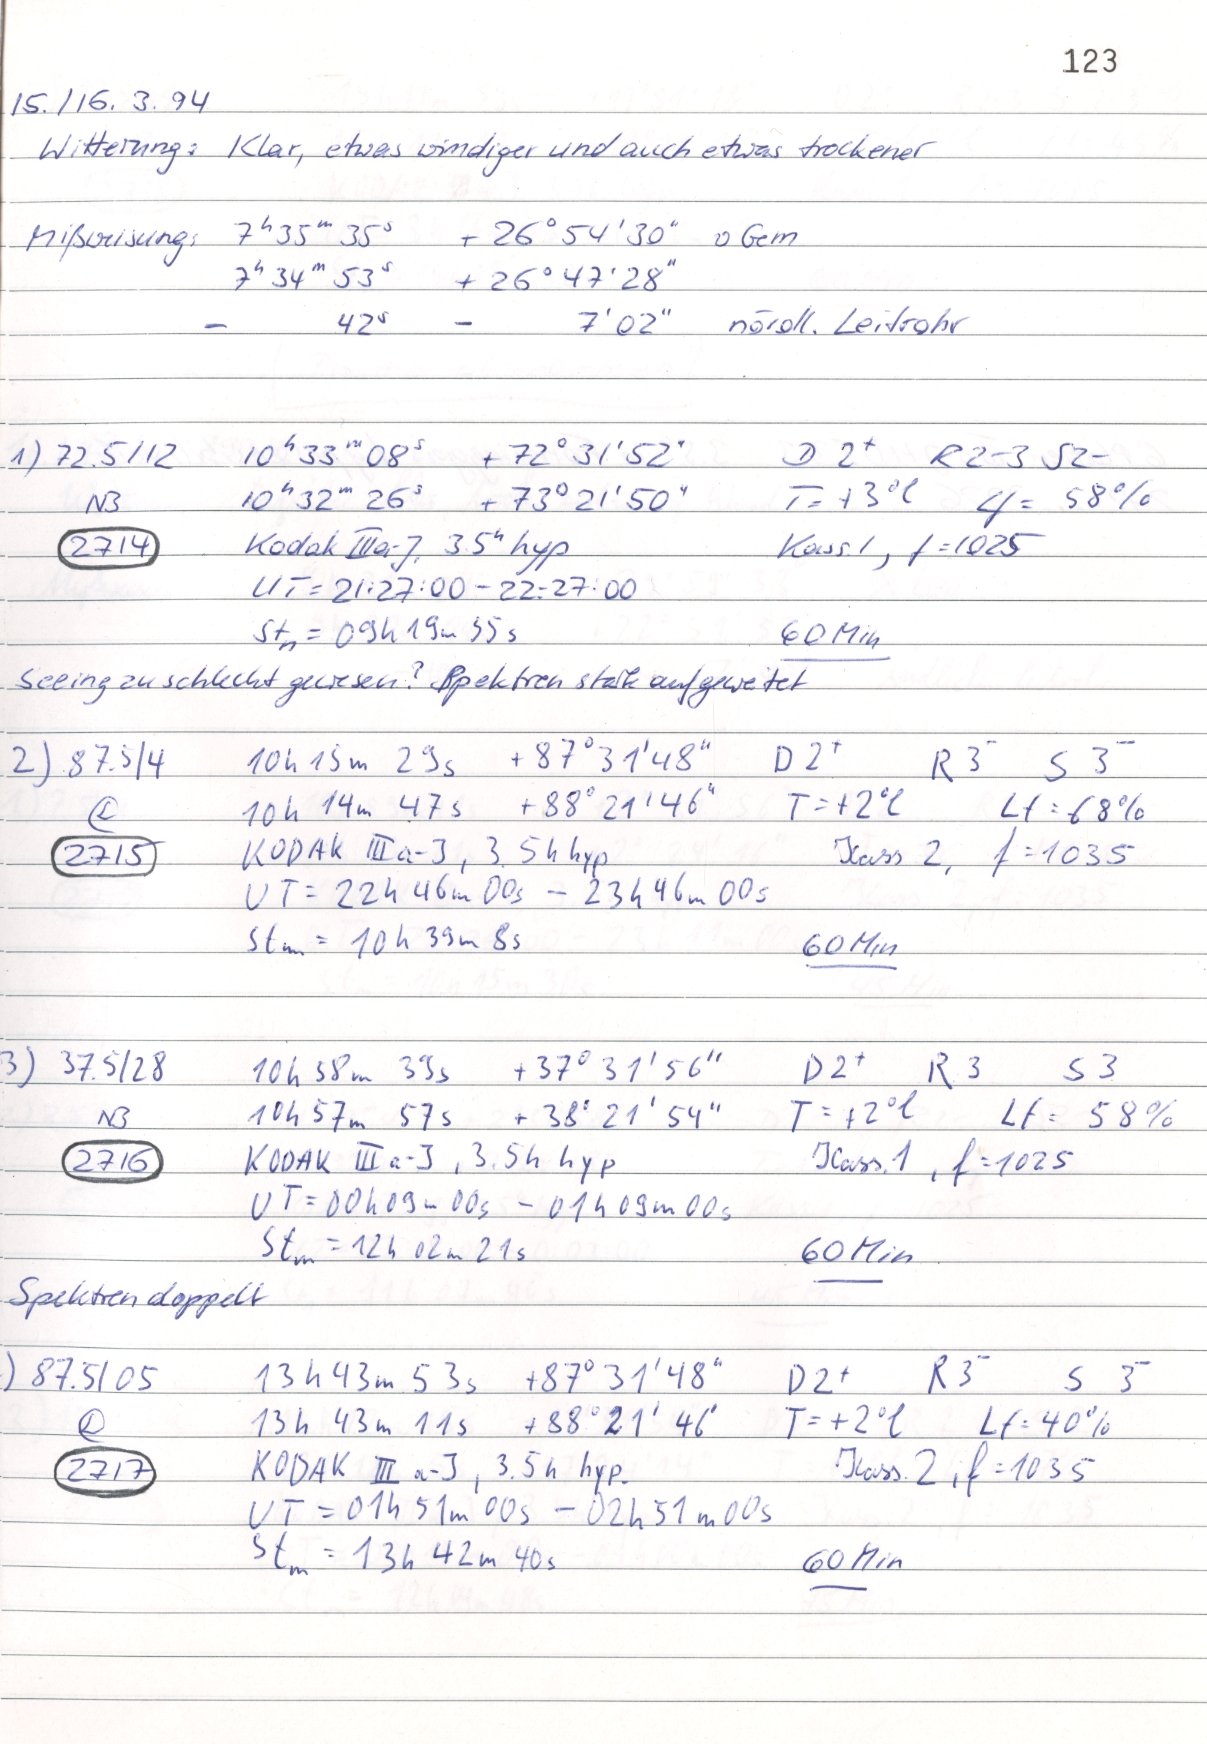 123
15./16. 3. 94
Witterung: Klar, etwas windiger und auch etwas trockener
Mißweisung: 7ʰ35ᵐ35ˢ +26°54'30" o Gem
7ʰ34ᵐ53ˢ +26°47'28"
- 42ˢ - 7'02" nördl. Leitrohr
1) 72.5/12 10ʰ33ᵐ08ˢ +72°31'52" D 2⁺ R2-3 S2-
N3 10ʰ32ᵐ26ˢ +73°21'50" T=+3°C Lf= 58%
2714 Kodak IIIa-J, 3.5ʰ hyp Kass 1, f=1025
UT=21:27:00-22:27:00
Stm = 09h19m35s 60 Min
Seeing zu schlecht gewesen? Spektren stark aufgeweitet
2) 87.5/4 10h 15m 29s +87°31'48" D 2⁺ R 3⁻ S 3⁻
10h 14m 47s +88°21'46" T=+2°C Lf=68%
2715 KODAK IIIa-J, 3.5h hyp Kass 2, f=1035
UT= 22h 46m 00s - 23h 46m 00s
Stm = 10h 39m 8s 60 Min
3) 37.5/28 10h 58m 39s +37°31'56" D2⁺ R 3 S 3
N3 10h 57m 57s +38°21'54" T=+2°C Lf= 58%
2716 KODAK IIIa-J, 3.5h hyp Kass. 1, f=1025
UT=00h09m00s - 01h09m00s
Stm = 12h 02m 21s 60 Min
Spektren doppelt
) 87.5/05 13h43m 53s +87°31'48" D2⁺ R 3⁻ S 3⁻
13h 43m 11s +88°21'46" T=+2°C Lf=40%
2717 KODAK III a-J, 3.5h hyp. Kass. 2, f=1035
UT=01h51m00s - 02h51m00s
Stm = 13h 42m 40s 60 Min